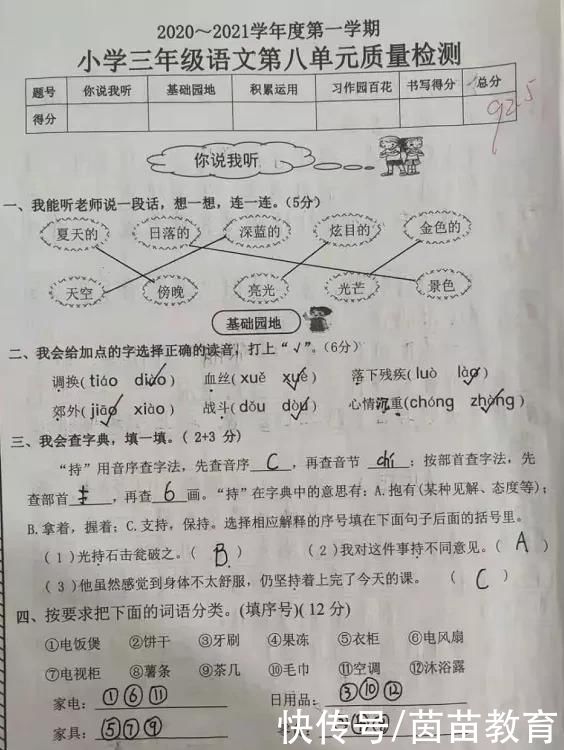 2020～2021学年度第一学期
小学三年级语文第八单元质量检测
题号 你说我听 基础园地 积累运用 习作园百花 书写得分 总分
得分 92.5
你说我听
一、我能听老师说一段话，想一想，连一连。(5分)
夏天的 日落的 深蓝的 炫目的 金色的
天空 傍晚 亮光 光芒 景色
基础园地
二、我会给加点的字选择正确的读音，打上“√”。(6分)
调换(tiáo diào) 血丝(xuě xuè) 落下残疾(luò lào)
郊外(jiāo xiào) 战斗(dǒu dòu) 心情沉重(chóng zhòng)
三、我会查字典，填一填。(2+3 分)
“持”用音序查字法，先查音序 C ，再查音节 chí ；按部首查字法，先
查部首 扌 ，再查 6 画。“持”在字典中的意思有：A.抱有(某种见解、态度等)；
B.拿着，握着；C.支持，保持。选择相应解释的序号填在下面句子后面的括号里。
(1)光持石击瓮破之。( B ) (2)我对这件事持不同意见。( A )
(3)他虽然感觉到身体不太舒服，仍坚持着上完了今天的课。( C )
四、按要求把下面的词语分类。(填序号)(12分)
①电饭煲 ②饼干 ③牙刷 ④果冻 ⑤衣柜 ⑥电风扇
⑦电视柜 ⑧薯条 ⑨茶几 ⑩毛巾 ⑪空调 ⑫沐浴露
家电：①⑥⑪ 日用品：③⑩⑫
家具：⑤⑦⑨
快传号/茵苗教育